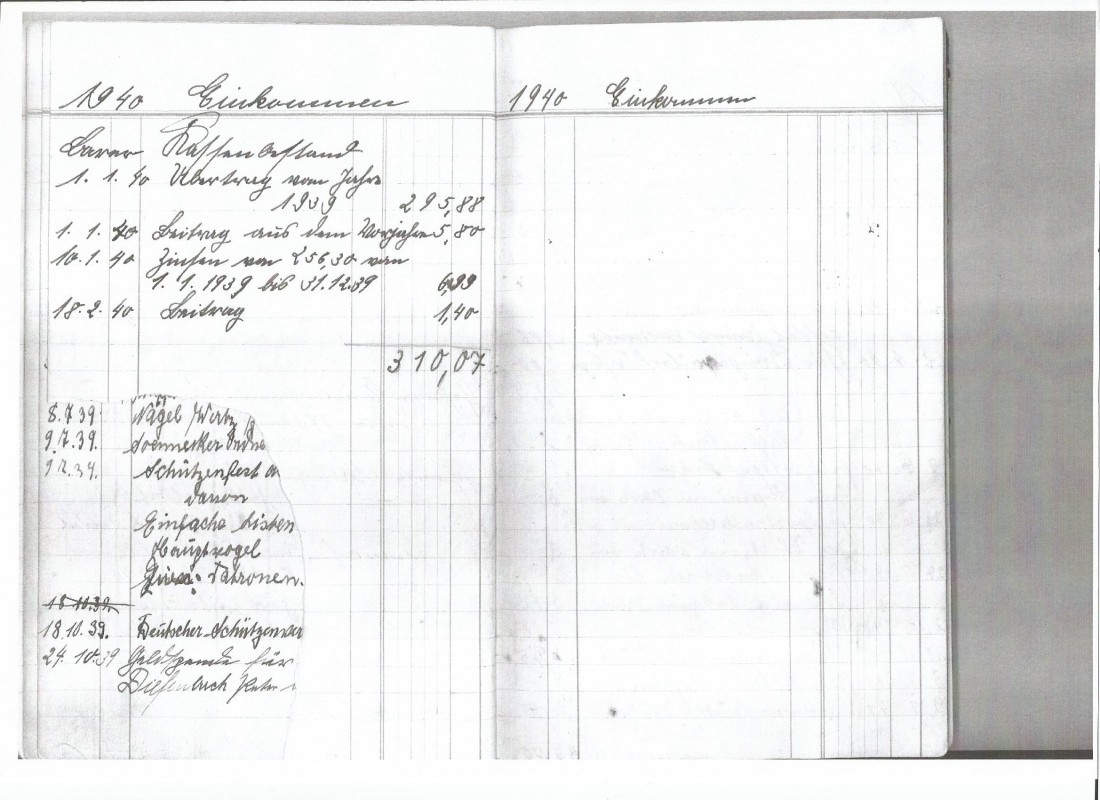 1940 Einkommen
Barer Kassenbestand
1. 1. 40 Übertrag vom Jahre
1939 295,88
1. 1. 40 Beitrag aus dem Vorjahre 5,80
10. 1. 40 Zinsen von 256,30 von
1. 1. 1939 bis 31.12.39 6,99
18. 2. 40 Beitrag 1,40
310,07
8.7.39 Nägel
9.7.39. Soennecken
9.7.39. Schützenfest
davon
Einfache Listen
Hauptvogel
Patronen.
18.10.39.
18.10.39. Deutscher Schützenver
24.10.39 Geldspende für
Diefenbach Peter
1940 Einkommen